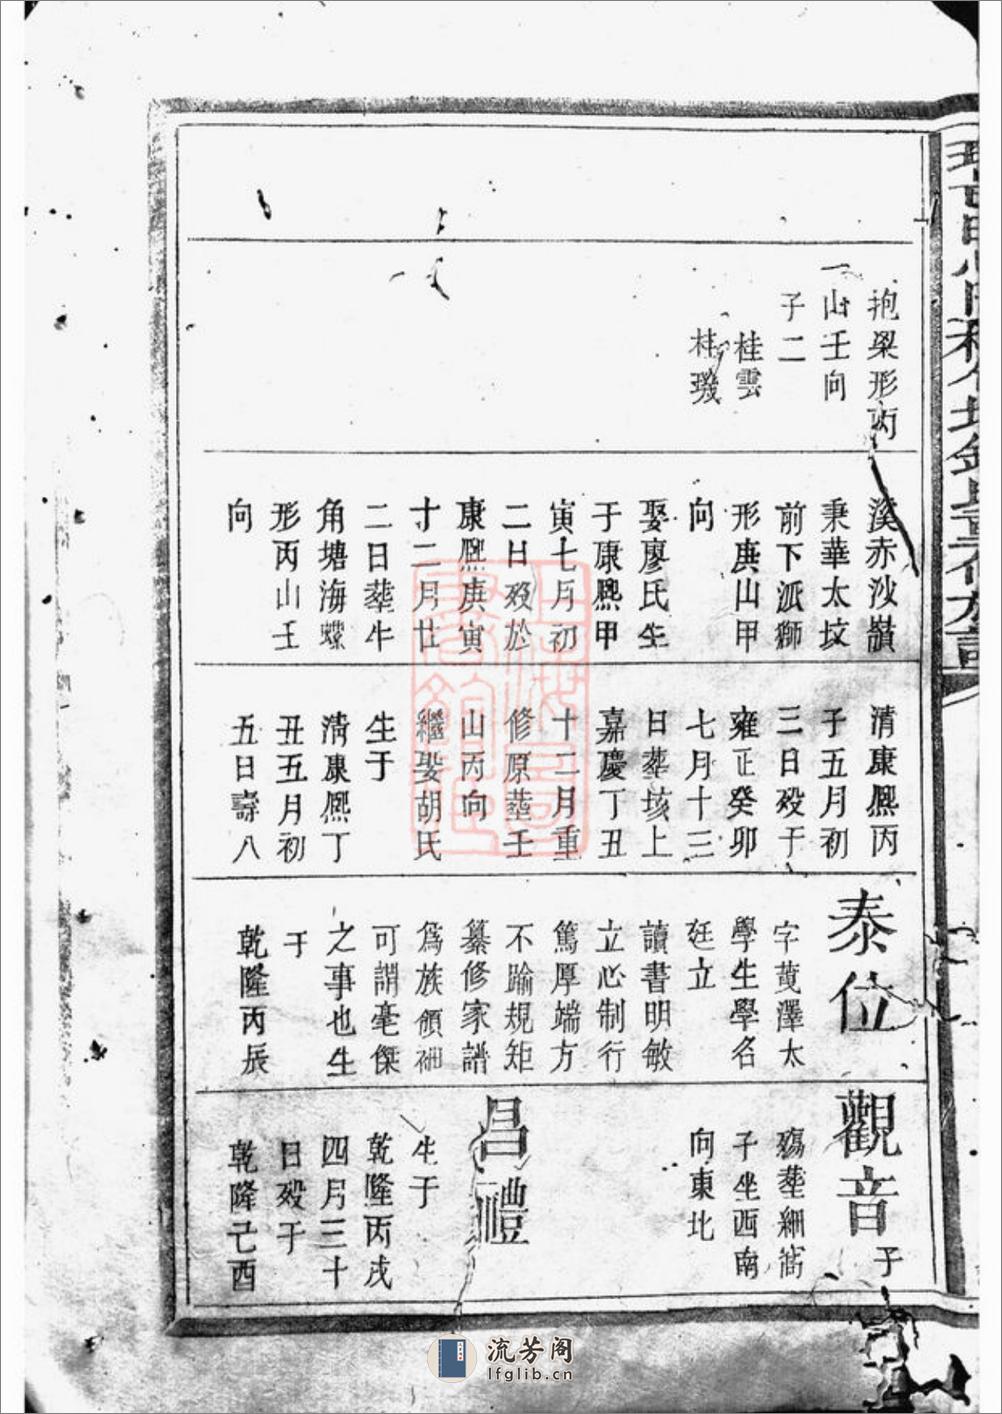 抱梁形丙
山壬向
子二
桂雲
桂璣
溪赤沙嶺
秉華太坟
前下派獅
形庚山甲
向
娶廖氏生
于康熈甲
寅七月初
二日殁於
康熈庚寅
十二月廿
二日塟牛
角塘海螺
形丙山壬
向
清康熈丙
子五月初
三日殁于
雍正癸卯
七月十三
日塟垓上
嘉慶丁丑
十二月重
修原塟壬
山丙向
繼娶胡氏
生于
清康熈丁
丑五月初
五日壽八
泰位
字黄澤太
學生學名
廷立
讀書明敏
立心制行
篤厚端方
不踰規矩
纂修家譜
爲族領袖
可謂毫傑
之事也生
于
乾隆丙辰
觀音
于
殤塟細窝
子坐西南
向東北
昌禮
生于
乾隆丙戌
四月三十
日殁于
乾隆己酉
流芳阁
lfglib.cn